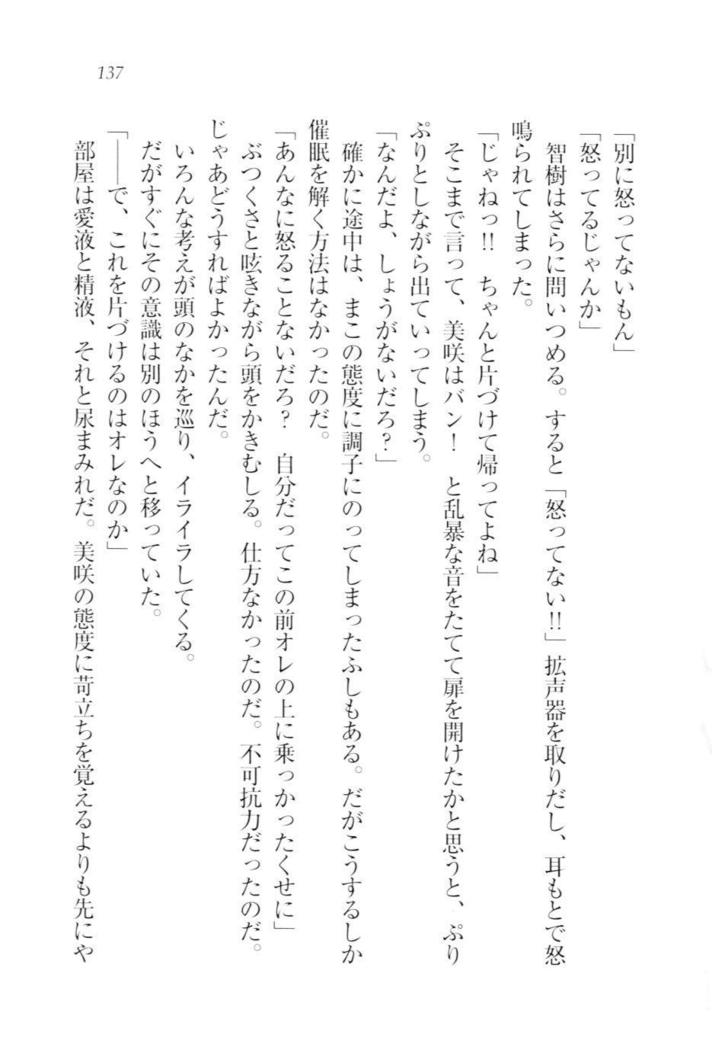 137
「別に怒ってないもん」
「怒ってるじゃんか」
　智樹はさらに問いつめる。すると「怒ってない!!」拡声器を取りだし、耳もとで怒
鳴られてしまった。
「じゃねっ!!　ちゃんと片づけて帰ってよね」
　そこまで言って、美咲はバン！　と乱暴な音をたてて扉を開けたかと思うと、ぷり
ぷりとしながら出ていってしまう。
「なんだよ、しょうがないだろ？」
　確かに途中は、まこの態度に調子にのってしまったふしもある。だがこうするしか
催眠を解く方法はなかったのだ。
「あんなに怒ることないだろ？　自分だってこの前オレの上に乗っかったくせに」
　ぶつくさと呟きながら頭をかきむしる。仕方なかったのだ。不可抗力だったのだ。
じゃあどうすればよかったんだ。
　いろんな考えが頭のなかを巡り、イライラしてくる。
　だがすぐにその意識は別のほうへと移っていた。
「――で、これを片づけるのはオレなのか」
　部屋は愛液と精液、それと尿まみれだ。美咲の態度に苛立ちを覚えるよりも先にや